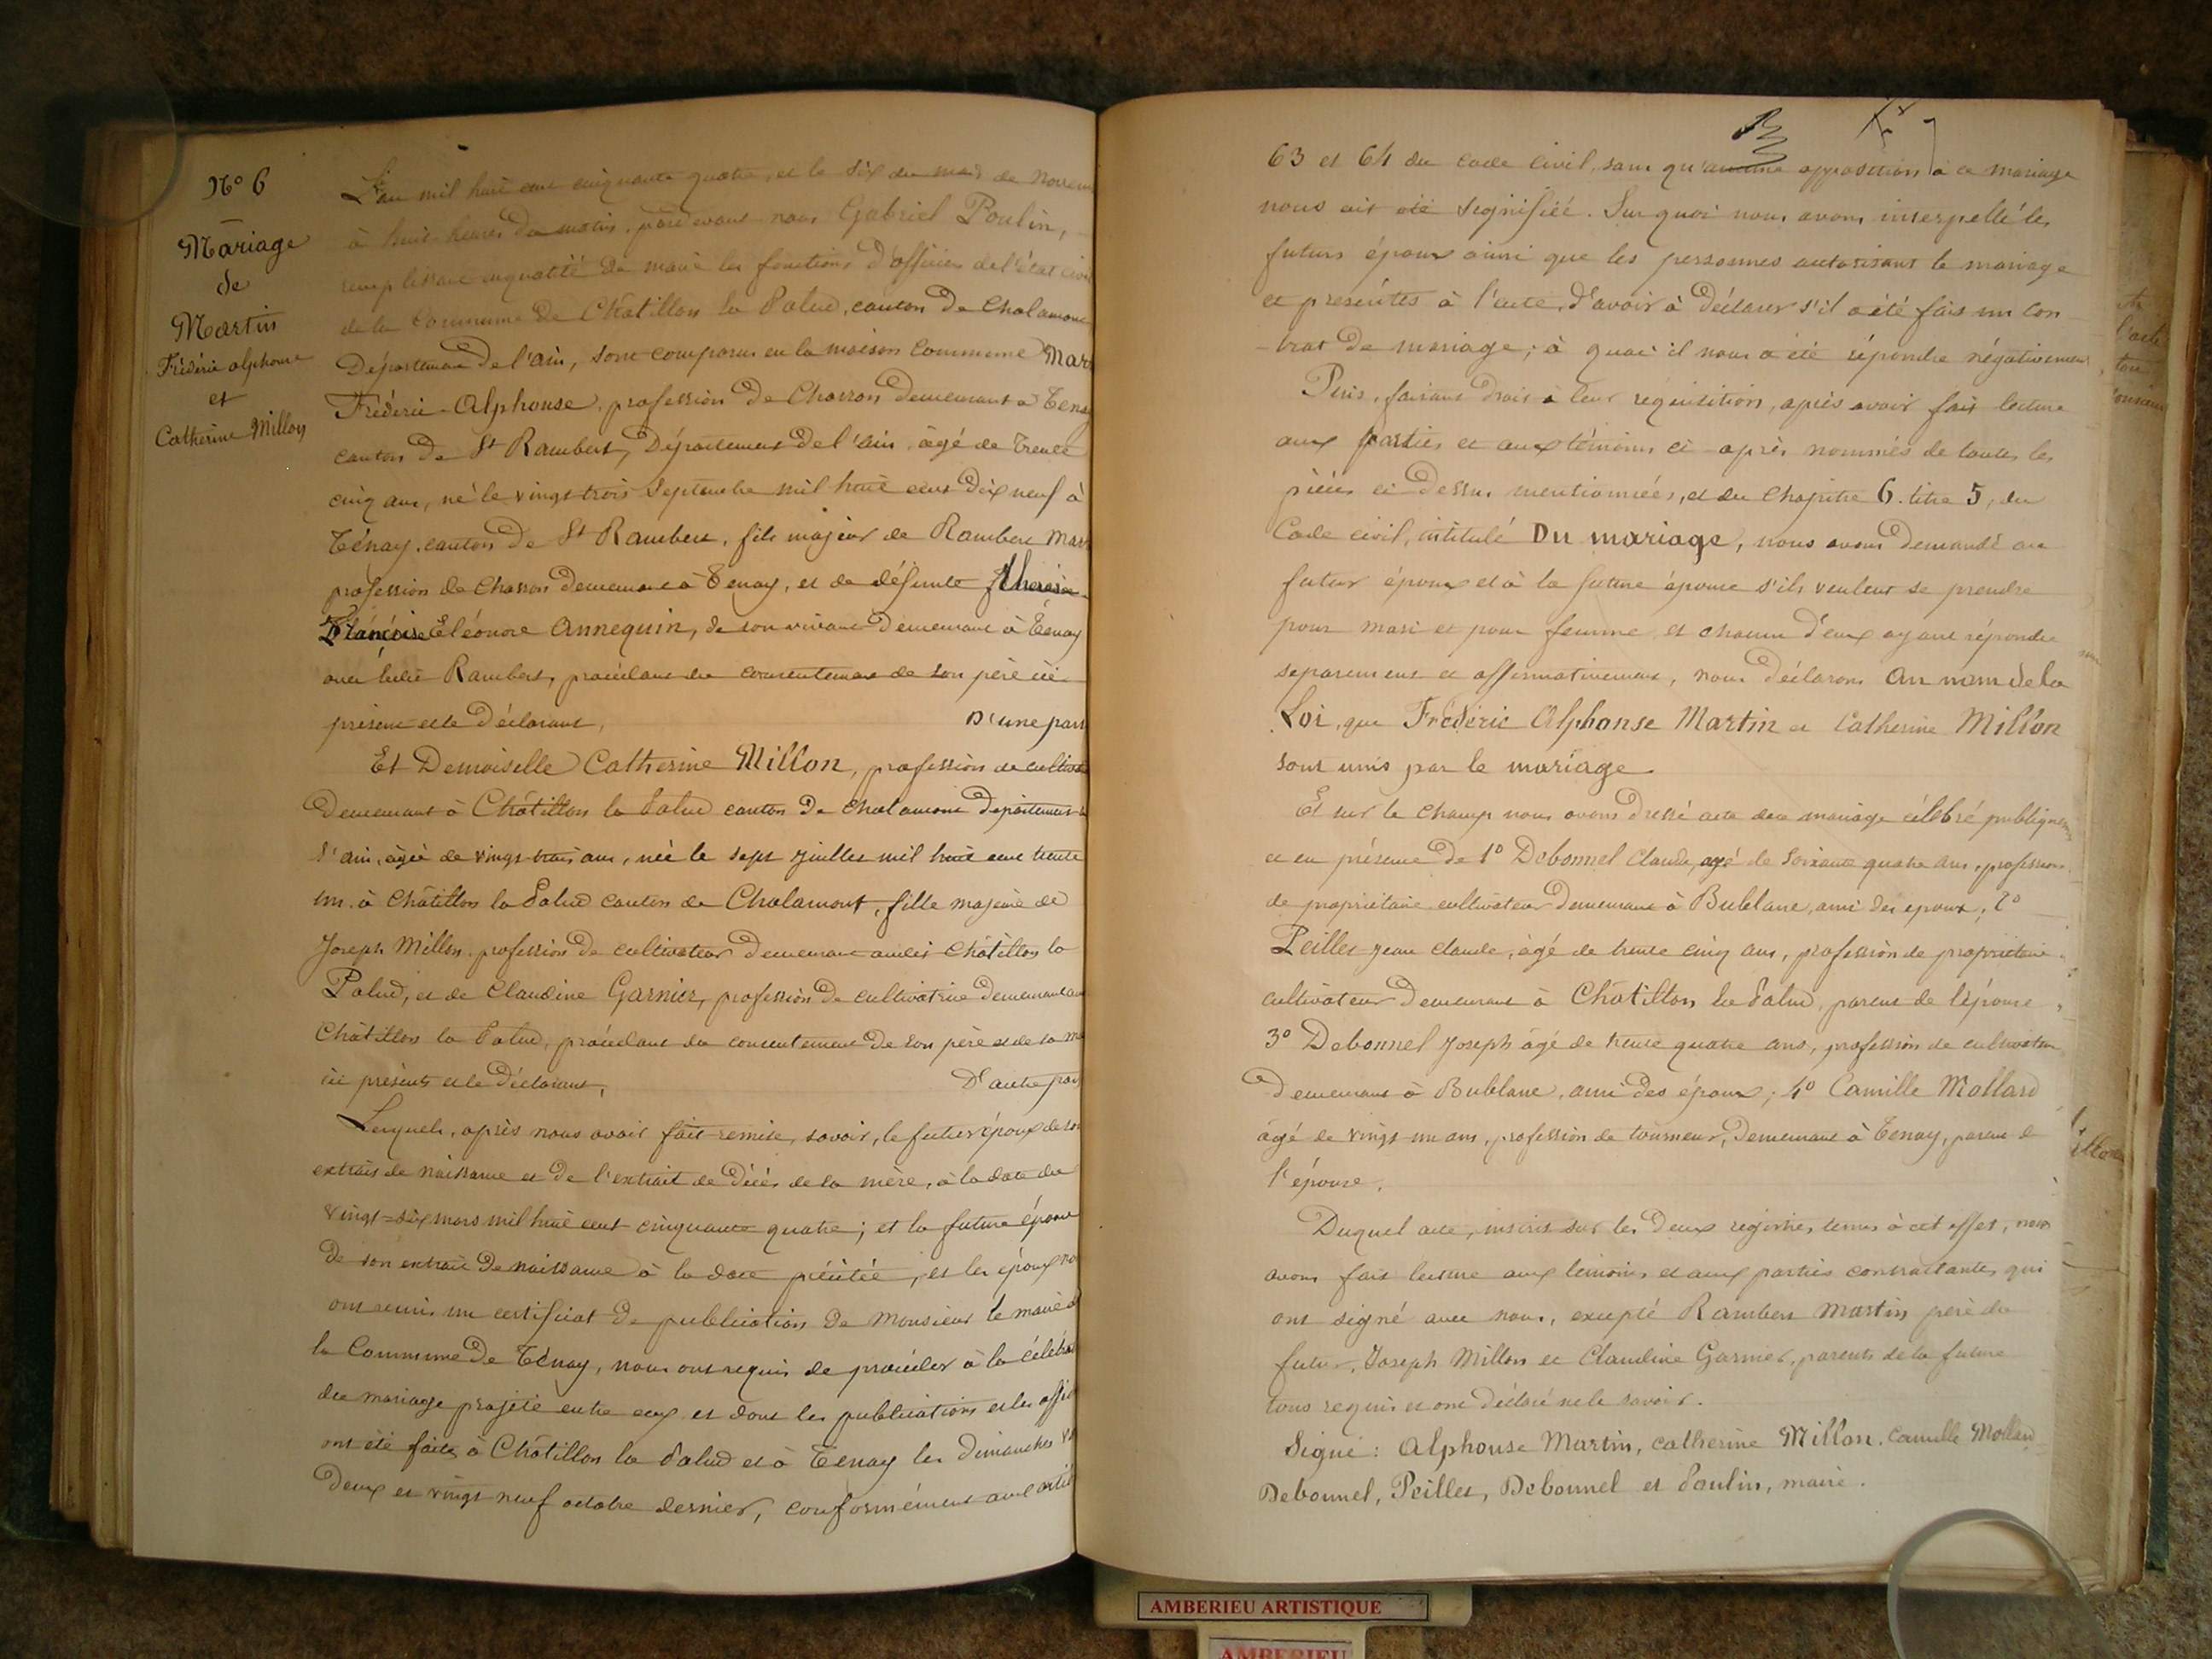 N° 6
Mariage
de
Martin
Frédéric alphonse
et
Catherine Millon
L'an mil huit cent cinquante quatre, et le six du mois de Novem
à huit heures du matin, pardevant nous Gabriel Poulin,
remplissant en qualité de maire les fonctions d'officier de l'état civil
de la Commune de Châtillon la Palud, canton de Chalamont
Département de l'ain, sont comparus en la maison Commune Mart
Frédéric-Alphonse, profession de Charron demeurant à Tenay
canton de St Rambert, Département de l'ain, âgé de trente
cinq ans, né le vingt trois Septembre mil huit cent dix neuf à
Ténay, canton de St Rambert, fils majeur de Rambert Mart
profession de Charron demeurant à Tenay, et de défunte thérèse
Françoise Eléonore Annequin, de son vivant demeurant à Tenay
avec ledit Rambert, procédant du consentement de son père ici
présent et le déclarant, D'une part
Et Demoiselle Catherine Millon, profession de cultivat
demeurant à Châtillon la Palud canton de Chalamont département de
l'ain, âgée de vingt trois ans, née le sept juillet mil huit cent trente
un à Châtillon la Palud canton de Chalamont, fille majeure de
Joseph Millon profession de cultivateur demeurant audit Châtillon la
Palud, et de Claudine Garnier, profession de cultivatrice demeurant au
Châtillon la Palud, procédant du consentement de son père et de sa mè
ici présents et le déclarant, D'autre part
Lesquels, après nous avoir fait remise, savoir, le futur époux de son
extrait de naissance et de l'extrait de décès de sa mère, à la date du
vingt-six mars mil huit cent cinquante quatre; et la future épouse
de son extrait de naissance à la date précitée, et les époux no
ont remis un certificat de publication de Monsieur le maire d
la Commune de Ténay, nous ont requis de procéder à la célébra
du mariage projeté entre eux et dont les publications et les affic
ont été faites à Châtillon la Palud et à Tenay les dimanches vi
deux et vingt neuf octobre dernier, conformément aux articl
63 et 64 du code civil, sans qu'aucune opposition à ce mariage
nous ait été signifiée. Sur quoi nous avons interpellé les
futurs époux ainsi que les personnes autorisant le mariage
et présentes à l'acte, d'avoir à déclarer s'il a été fait un con
-trat de mariage; à quoi il nous a été répondu négativement
Puis, faisant droit à leur réquisition, après avoir fait lecture
aux parties et aux témoins ci-après nommés de toutes les
pièces ci dessus mentionnées, et du Chapitre 6. titre 5, du
Code civil, intitulé Du mariage, nous avons demandé au
futur époux et à la future épouse s'ils veulent se prendre
pour mari et pour femme, et chacun d'eux ayant répondu
séparement et affirmativement, nous déclarons au nom de la
Loi, que Frédéric Alphonse Martin et Catherine Millon
sont unis par le mariage
Et sur le champ nous avons dressé acte du mariage célébré publiquement
et en présence de 1° Debonnel Claude, agé de soixante quatre ans, profession
de propriétaire cultivateur demeurant à Bublane, ami des époux, 2°
Peillet Jean Claude, âgé de trente cinq ans, profession de propriétaire
cultivateur demeurant à Châtillon la Palud, parent de l'épouse,
3° Debonnel Joseph âgé de trente quatre ans, profession de cultivateur
demeurant à Bublane, ami des époux; 4° Camille Mollard
âgé de vingt un ans, profession de tourneur, demeurant à Tenay, parent de
l'épouse.
Duquel acte, inscrit sur les deux registres tenus à cet effet, nous
avons fait lecture aux témoins et aux parties contractantes, qui
ont signé avec nous, excepté Rambert Martin père du
futur, Joseph Millon et Claudine Garnier, parents de la future
tous requis et ont déclaré ne le savoir.
Signé: Alphonse Martin, Catherine Millon, Camille Mollard
Debonnel, Peillet, Debonnel et Poulin, maire.
AMBERIEU ARTISTIQUE
AMBERIEU